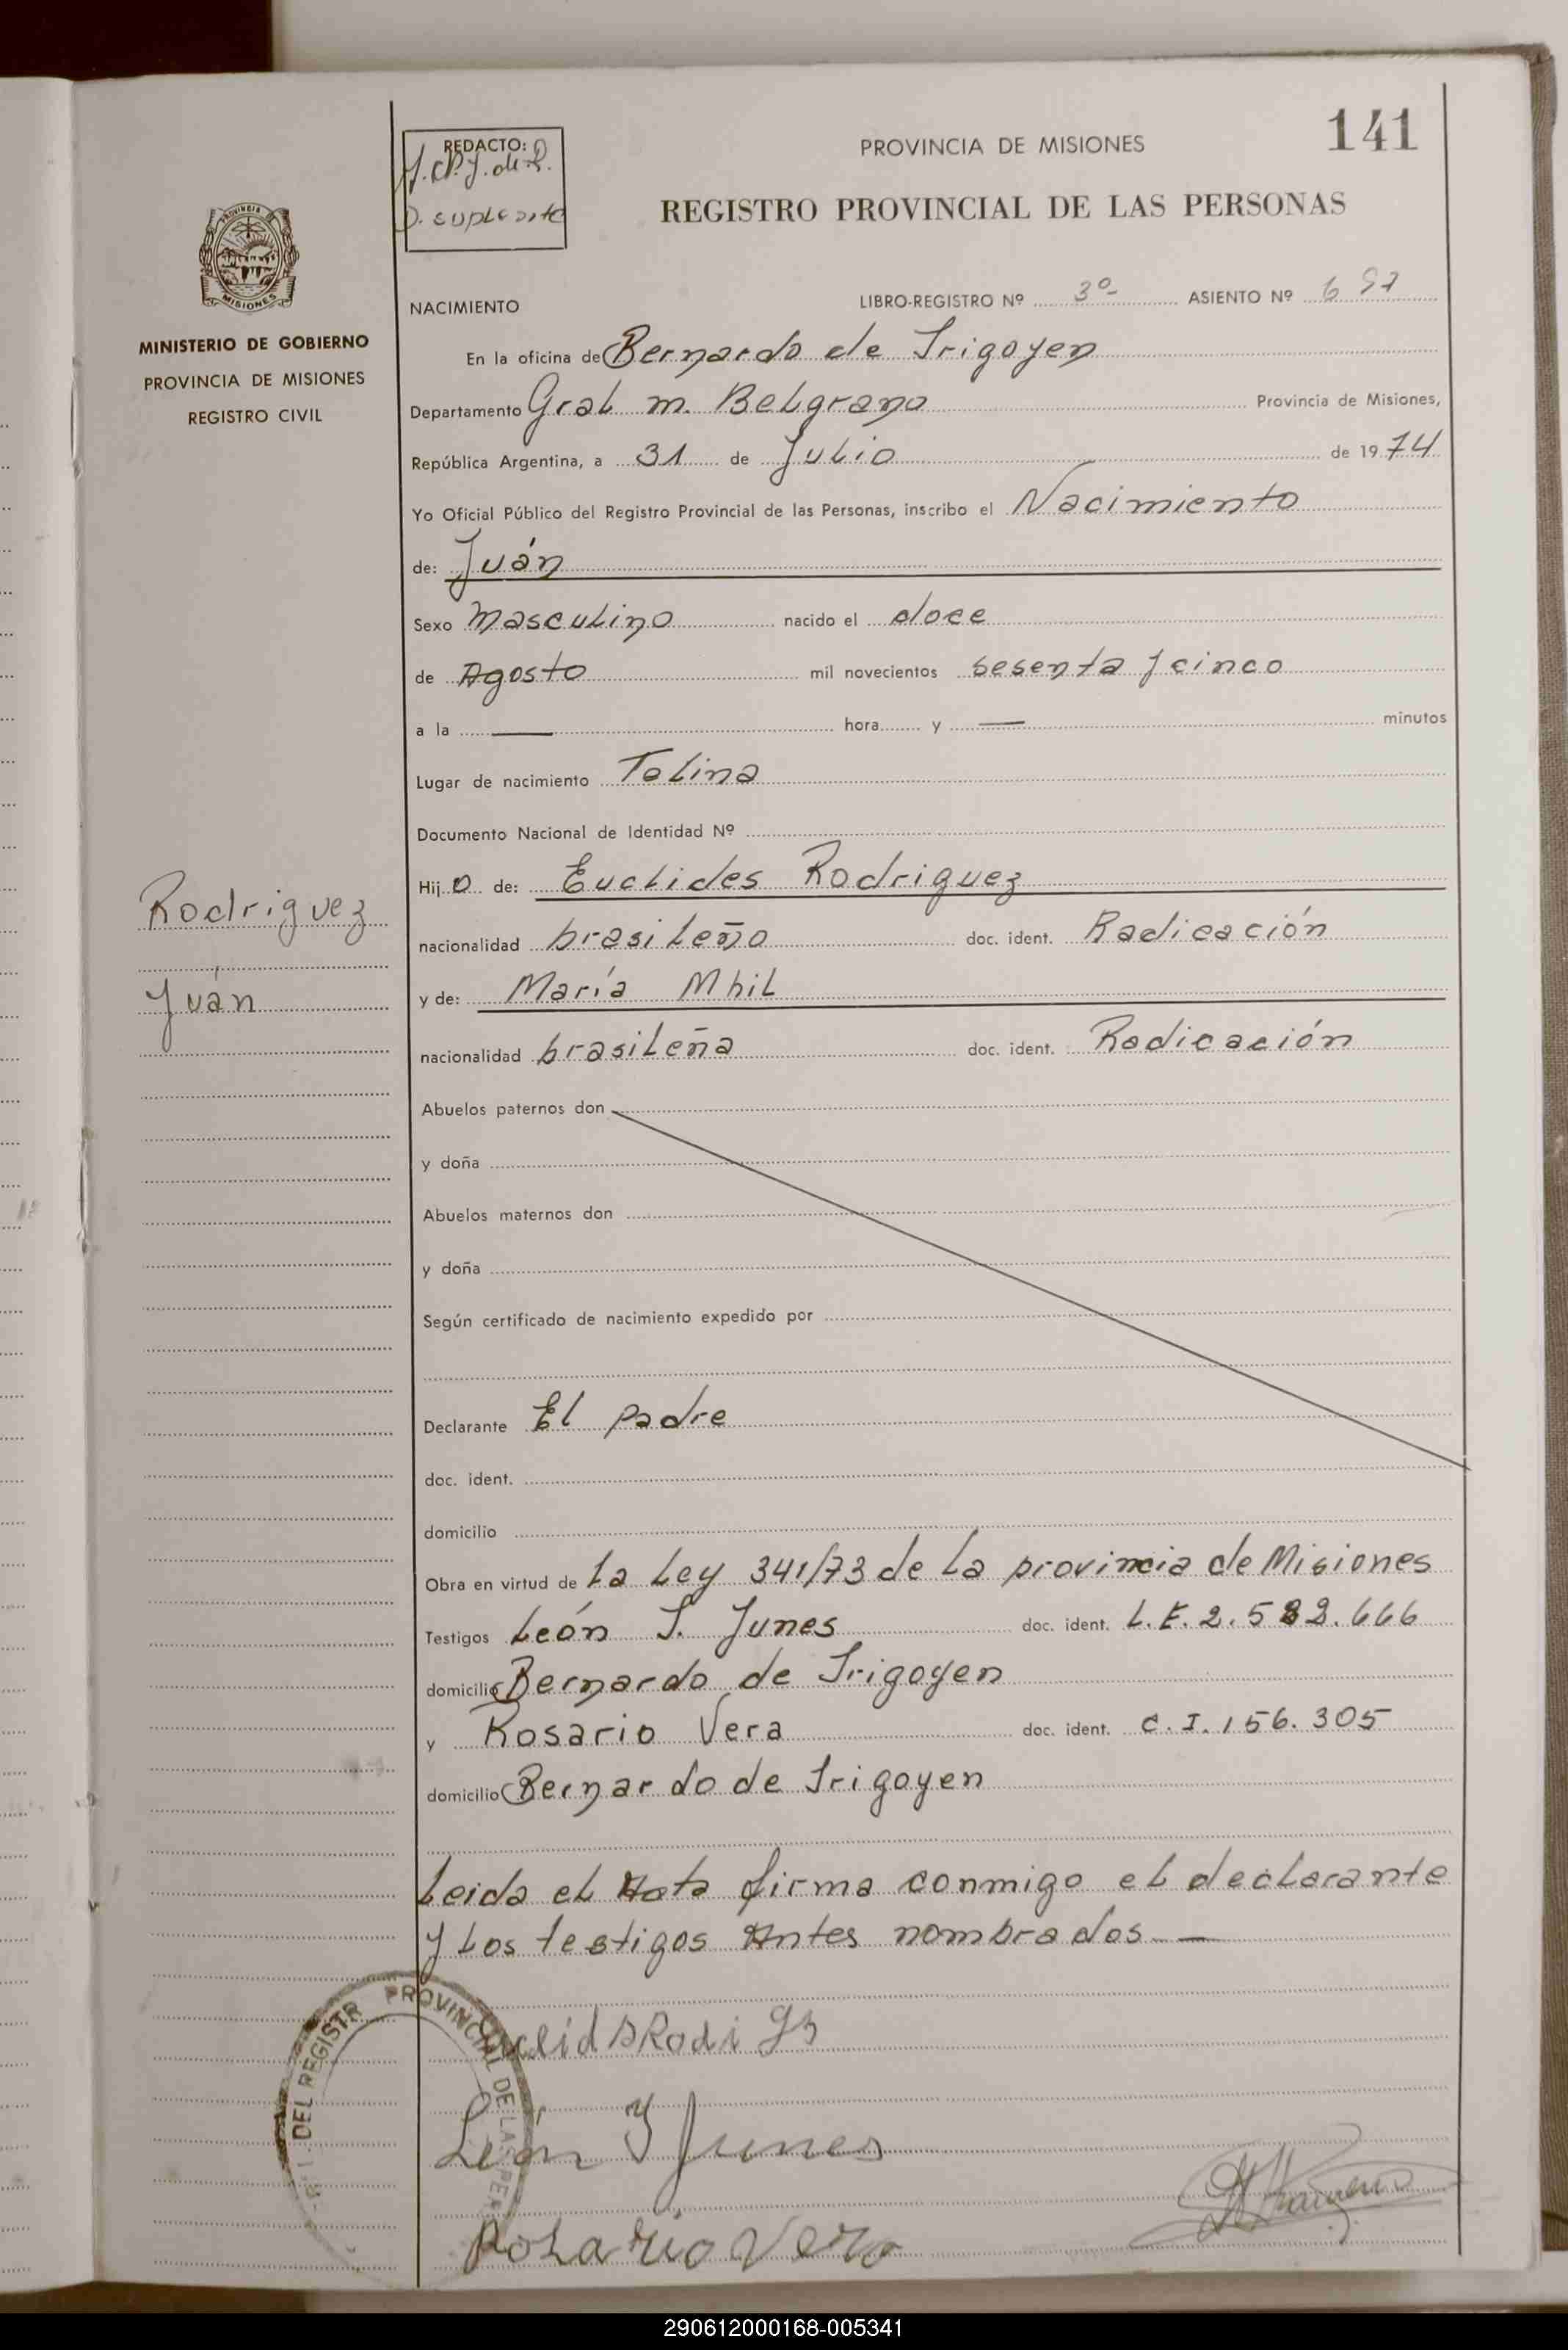 141
REDACTO:
D. suplente
PROVINCIA DE MISIONES
REGISTRO PROVINCIAL DE LAS PERSONAS
PROVINCIA DE
MISIONES
MINISTERIO DE GOBIERNO
PROVINCIA DE MISIONES
REGISTRO CIVIL
NACIMIENTO LIBRO-REGISTRO Nº 3º ASIENTO Nº 697
En la oficina de Bernardo de Irigoyen
Departamento Gral m. Belgrano Provincia de Misiones,
República Argentina, a 31 de Julio de 1974
Yo Oficial Público del Registro Provincial de las Personas, inscribo el Nacimiento
de: Juán
Sexo Masculino nacido el doce
de Agosto mil novecientos sesenta y cinco
a la — hora y — minutos
Lugar de nacimiento Tolina
Documento Nacional de Identidad Nº
Hijo de: Euclides Rodriguez
nacionalidad brasileño doc. ident. Radicación
y de: María Mhil
nacionalidad brasileña doc. ident. Radicación
Rodriguez
Juán
Abuelos paternos don
y doña
Abuelos maternos don
y doña
Según certificado de nacimiento expedido por
Declarante El padre
doc. ident.
domicilio
Obra en virtud de la Ley 341/73 de la provincia de Misiones
Testigos León I. Junes doc. ident. L.E. 2.582.666
domicilio Bernardo de Irigoyen
y Rosario Vera doc. ident. C.I. 156.305
domicilio Bernardo de Irigoyen
Leida el Acta firma conmigo el declarante
y los testigos Antes nombrados —
DEL REGISTR PROVINCIAL DE LAS PER
León I Junes
Rosario Vera
290612000168-005341